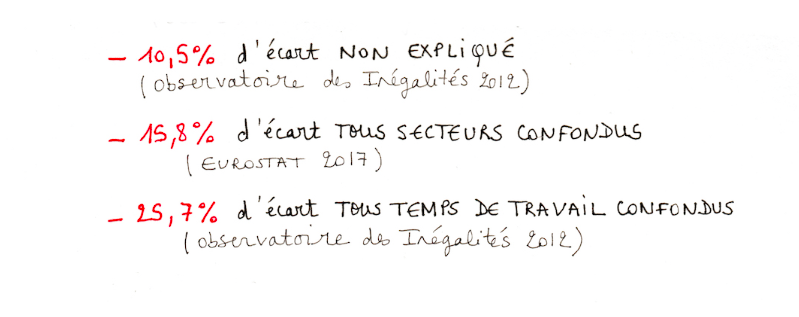 - 10,5% d'écart NON EXPLIQUÉ
(Observatoire des Inégalités 2012)
- 15,8% d'écart TOUS SECTEURS CONFONDUS
(EUROSTAT 2017)
- 25,7% d'écart TOUS TEMPS DE TRAVAIL CONFONDUS
(Observatoire des Inégalités 2012)